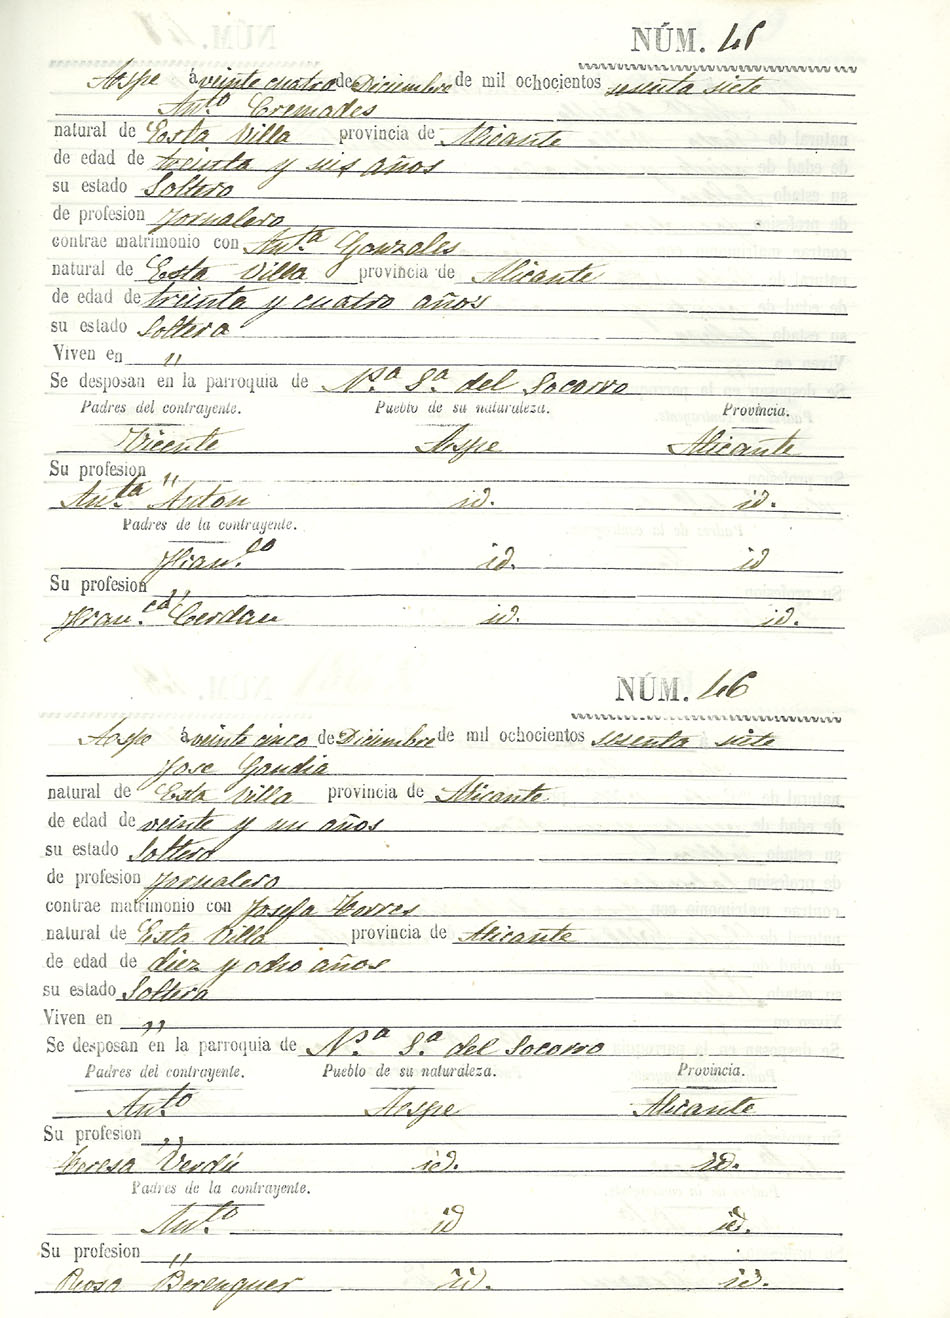 NÚM. 45
Aspe á veinte cuatro de Diciembre de mil ochocientos sesenta siete
Ant.º Cremades
natural de Esta Villa provincia de Alicante
de edad de treinta y seis años
su estado Soltero
de profesion Jornalero
contrae matrimonio con Ant.ª Gonzales
natural de Esta Villa provincia de Alicante
de edad de treinta y cuatro años
su estado Soltera
Viven en "
Se desposan en la parroquia de N.ª S.ª del Socorro
Padres del contrayente. Pueblo de su naturaleza. Provincia.
Vicente Aspe Alicante
Su profesion "
Ant.ta Anton id. id.
Padres de la contrayente.
Fran.co id. id
Su profesion "
Fran.ca Cerdan id. id.
NÚM. 46
Aspe á veinte cinco de Diciembre de mil ochocientos sesenta siete
Jose Gandia
natural de Esta Villa provincia de Alicante
de edad de veinte y un años
su estado Soltero
de profesion Jornalero
contrae matrimonio con Josefa Torres
natural de Esta Villa provincia de Alicante
de edad de diez y ocho años
su estado Soltera
Viven en "
Se desposan en la parroquia de N.ª S.ª del Socorro
Padres del contrayente. Pueblo de su naturaleza. Provincia.
Ant.to Aespe Alicante
Su profesion "
Teresa Verdú id. id.
Padres de la contrayente.
Ant.to id id.
Su profesion "
Rosa Berenguer id. id.